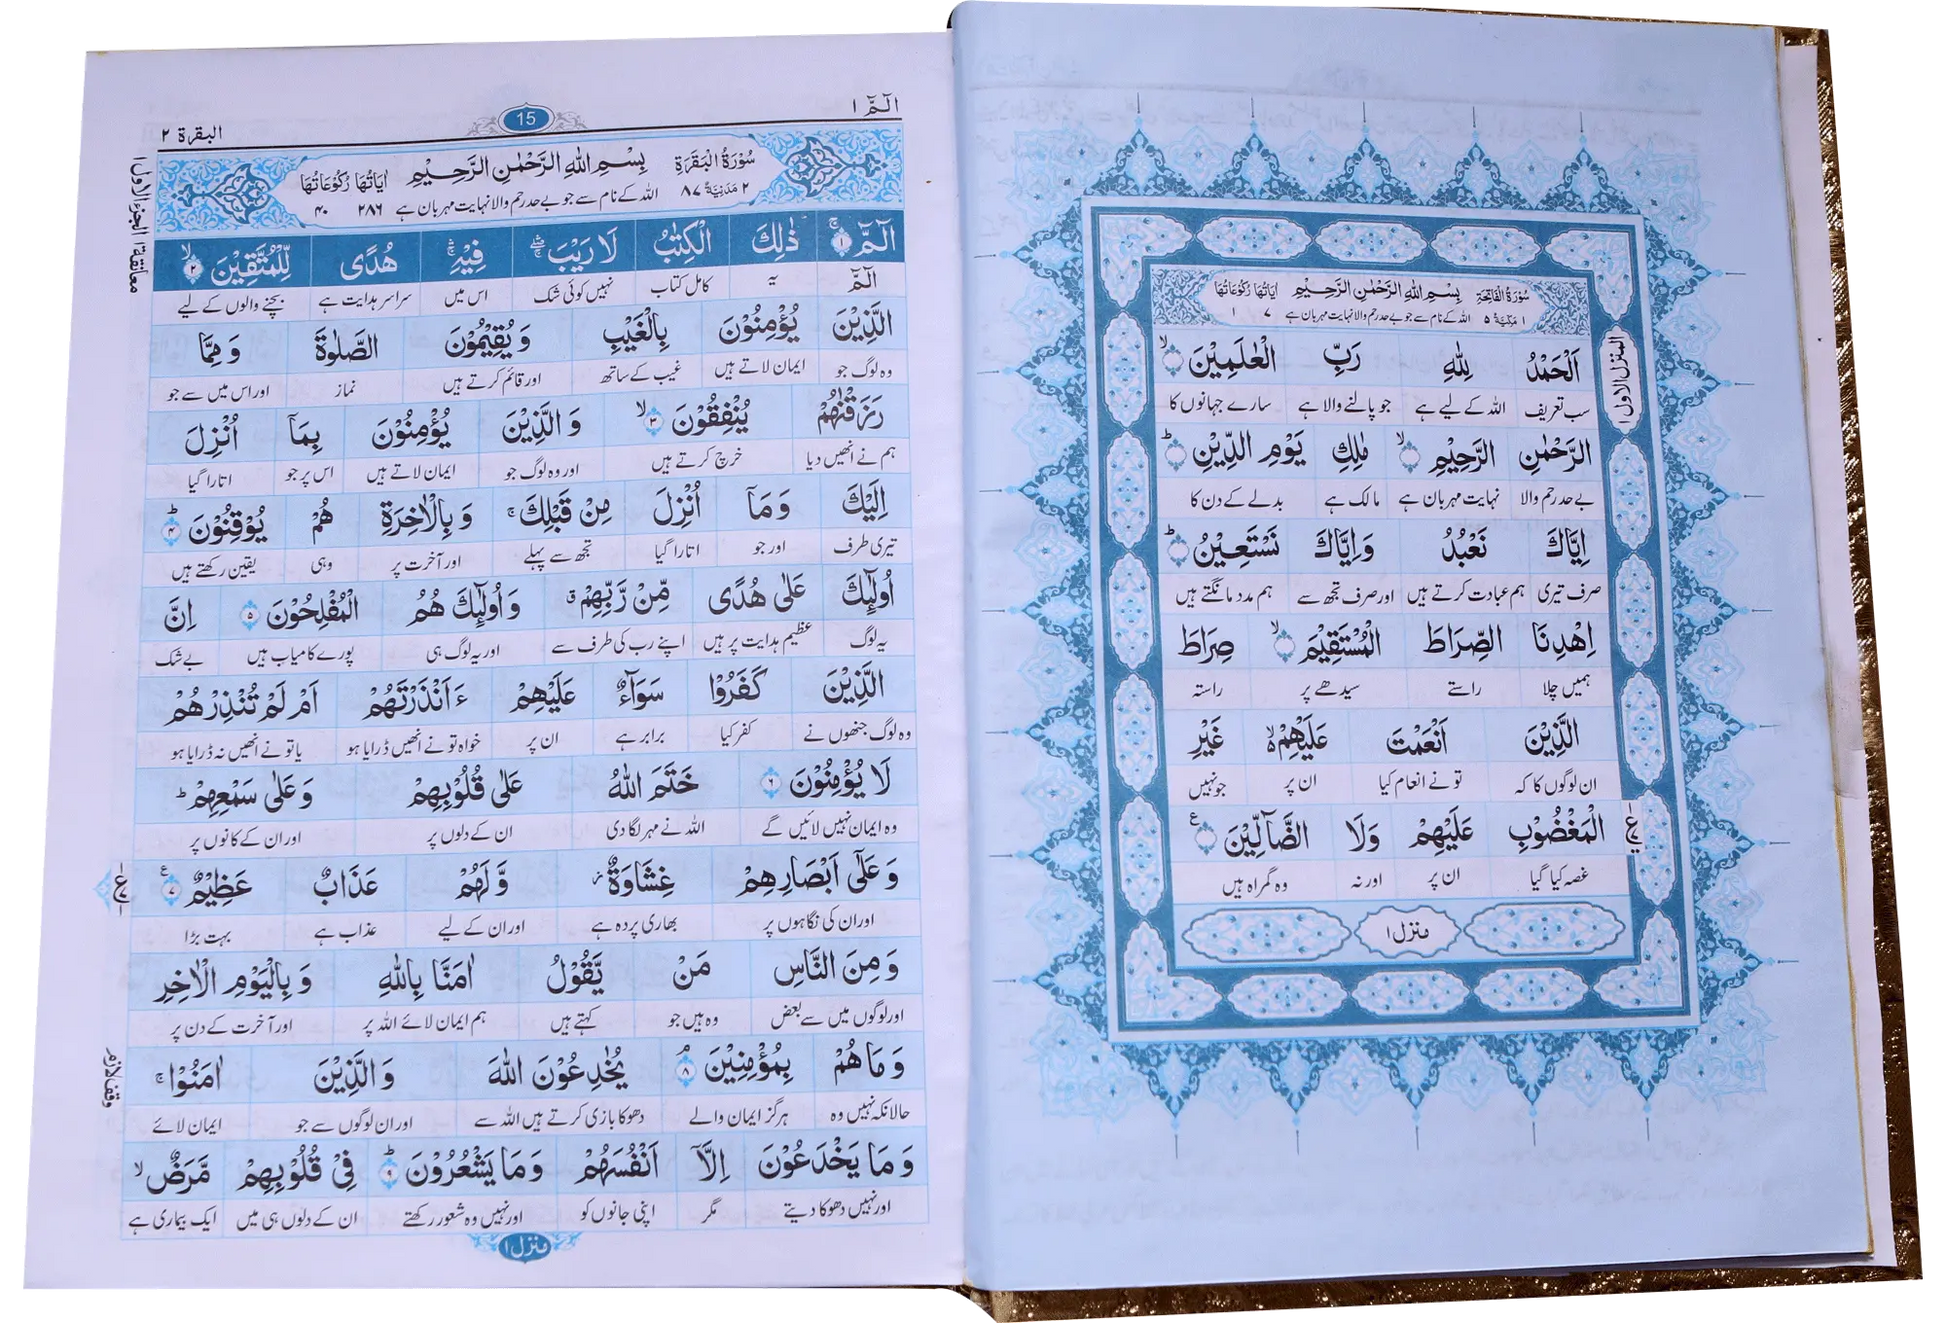 سُوْرَةُ الْفَاتِحَةِ بِسْمِ اللّٰهِ الرَّحْمٰنِ الرَّحِيْمِ اٰيَاتُهَا رُكُوْعَاتُهَا
١ مَكِّيَّةٌ ٥ اللہ کے نام سے جو بے حد رحم والا نہایت مہربان ہے ٧ ١
المنزل الاول ١
اَلْحَمْدُ لِلّٰهِ رَبِّ الْعٰلَمِيْنَ ۙ ١
سب تعریف اللہ کے لیے ہے جو پالنے والا ہے سارے جہانوں کا
الرَّحْمٰنِ الرَّحِيْمِ ۙ ٢ مٰلِكِ يَوْمِ الدِّيْنِ ؕ ٣
بے حد رحم والا نہایت مہربان ہے مالک ہے بدلے کے دن کا
اِيَّاكَ نَعْبُدُ وَاِيَّاكَ نَسْتَعِيْنُ ؕ ٤
صرف تیری ہم عبادت کرتے ہیں اور صرف تجھ سے ہم مدد مانگتے ہیں
اِهْدِنَا الصِّرَاطَ الْمُسْتَقِيْمَ ۙ ٥ صِرَاطَ
ہمیں چلا راستے سیدھے پر راستہ
الَّذِيْنَ اَنْعَمْتَ عَلَيْهِمْ ۙ غَيْرِ
ان لوگوں کا کہ تو نے انعام کیا ان پر جو نہیں
الْمَغْضُوْبِ عَلَيْهِمْ وَلَا الضَّآلِّيْنَ ٧
غصہ کیا گیا ان پر اور نہ وہ گمراہ ہیں
منزل ١
الٓمّٓ ١ 15 البقرة ٢
سُوْرَةُ الْبَقَرَةِ بِسْمِ اللّٰهِ الرَّحْمٰنِ الرَّحِيْمِ اٰيَاتُهَا رُكُوْعَاتُهَا
٢ مَدَنِيَّةٌ ٨٧ اللہ کے نام سے جو بے حد رحم والا نہایت مہربان ہے ٢٨٦ ٤٠
معانقة ١ الجزء الاول ١
الٓمّٓ ۚ ١ ذٰلِكَ الْكِتٰبُ لَا رَيْبَ ۛۚ فِيْهِ ۛۚ هُدًى لِّلْمُتَّقِيْنَ ۙ ٢
الٓمّٓ یہ کامل کتاب نہیں کوئی شک اس میں سراسر ہدایت ہے بچنے والوں کے لیے
الَّذِيْنَ يُؤْمِنُوْنَ بِالْغَيْبِ وَيُقِيْمُوْنَ الصَّلٰوةَ وَمِمَّا
وہ لوگ جو ایمان لاتے ہیں غیب کے ساتھ اور قائم کرتے ہیں نماز اور اس میں سے جو
رَزَقْنٰهُمْ يُنْفِقُوْنَ ۙ ٣ وَالَّذِيْنَ يُؤْمِنُوْنَ بِمَآ اُنْزِلَ
ہم نے انھیں دیا خرچ کرتے ہیں اور وہ لوگ جو ایمان لاتے ہیں اس پر جو اتارا گیا
اِلَيْكَ وَمَآ اُنْزِلَ مِنْ قَبْلِكَ ۚ وَبِالْاٰخِرَةِ هُمْ يُوْقِنُوْنَ ؕ ٤
تیری طرف اور جو اتارا گیا تجھ سے پہلے اور آخرت پر وہی یقین رکھتے ہیں
اُولٰٓئِكَ عَلٰى هُدًى مِّنْ رَّبِّهِمْ ۗ وَاُولٰٓئِكَ هُمُ الْمُفْلِحُوْنَ ٥ اِنَّ
یہ لوگ عظیم ہدایت پر ہیں اپنے رب کی طرف سے اور یہ لوگ ہی پورے کامیاب ہیں بے شک
الَّذِيْنَ كَفَرُوْا سَوَآءٌ عَلَيْهِمْ ءَاَنْذَرْتَهُمْ اَمْ لَمْ تُنْذِرْهُمْ
وہ لوگ جنھوں نے کفر کیا برابر ہے ان پر خواہ تو نے انھیں ڈرایا ہو یا تو نے انھیں نہ ڈرایا ہو
لَا يُؤْمِنُوْنَ ٦ خَتَمَ اللّٰهُ عَلٰى قُلُوْبِهِمْ وَعَلٰى سَمْعِهِمْ ؕ
وہ ایمان نہیں لائیں گے اللہ نے مہر لگا دی ان کے دلوں پر اور ان کے کانوں پر
وَعَلٰٓى اَبْصَارِهِمْ غِشَاوَةٌ ۡ وَّلَهُمْ عَذَابٌ عَظِيْمٌ ٧
اور ان کی نگاہوں پر بھاری پردہ ہے اور ان کے لیے عذاب ہے بہت بڑا
وَمِنَ النَّاسِ مَنْ يَّقُوْلُ اٰمَنَّا بِاللّٰهِ وَبِالْيَوْمِ الْاٰخِرِ
اور لوگوں میں سے بعض وہ ہیں جو کہتے ہیں ہم ایمان لائے اللہ پر اور آخرت کے دن پر
وَمَا هُمْ بِمُؤْمِنِيْنَ ۘ ٨ يُخٰدِعُوْنَ اللّٰهَ وَالَّذِيْنَ اٰمَنُوْا ۚ
حالانکہ نہیں وہ ہرگز ایمان والے دھوکا بازی کرتے ہیں اللہ سے اور ان لوگوں سے جو ایمان لائے
وقف لازم
وَمَا يَخْدَعُوْنَ اِلَّآ اَنْفُسَهُمْ وَمَا يَشْعُرُوْنَ ؕ ٩ فِيْ قُلُوْبِهِمْ مَّرَضٌ ۙ
اور نہیں دھوکا دیتے مگر اپنی جانوں کو اور نہیں وہ شعور رکھتے ان کے دلوں ہی میں ایک بیماری ہے
منزل ١